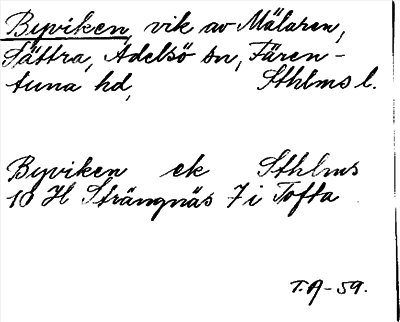 Byviken, vik av Mälaren,
Sättra, Adelsö sn, Fären-
tuna hd, Sthlms l.
Byviken ek Sthlms
10 H Strängnäs 7 i Tofta
T.A-59.